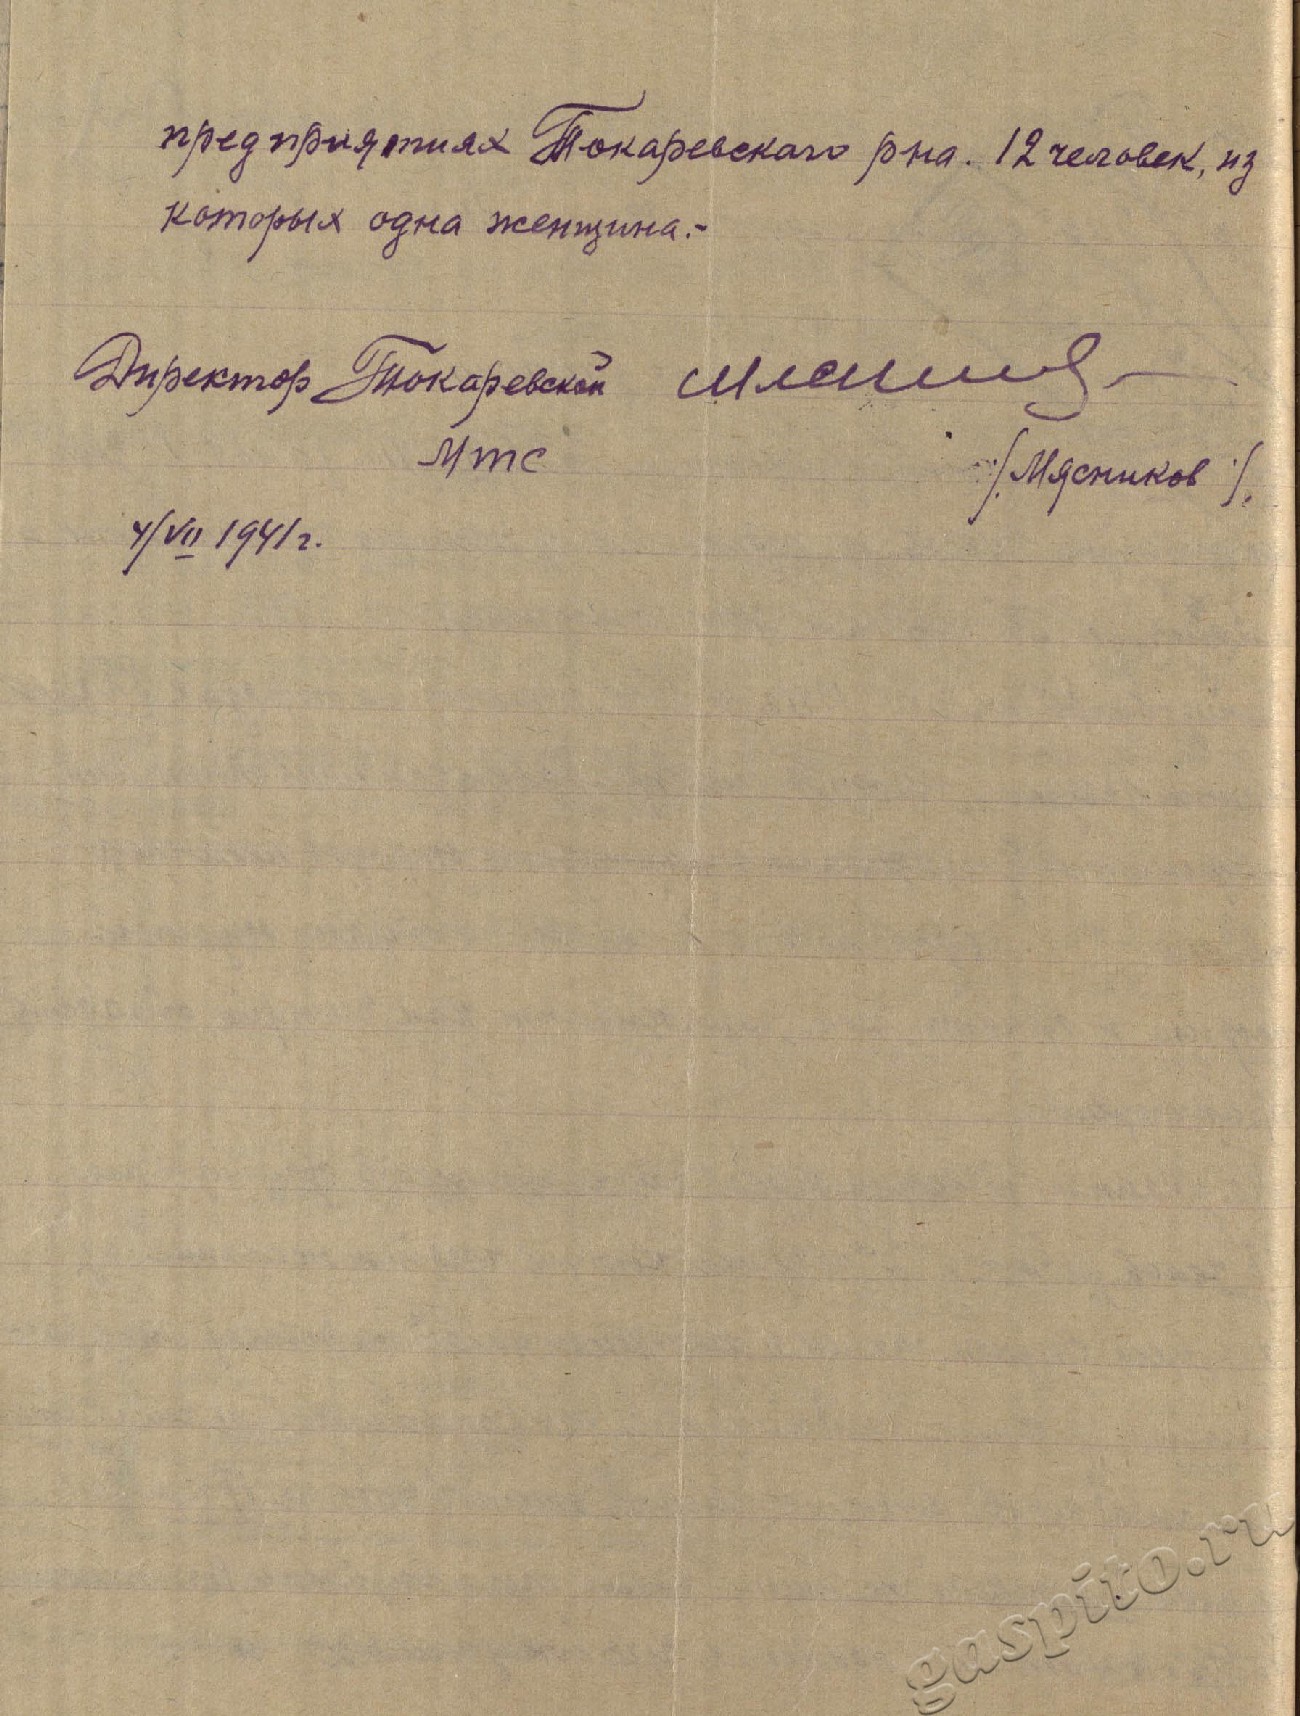 предприятиях Токаревского р на. 12 человек, из
которых одна женщина.-
Директор Токаревской
МТС
/Мясников/.
4/VII 1941 г.
gaspito.ru